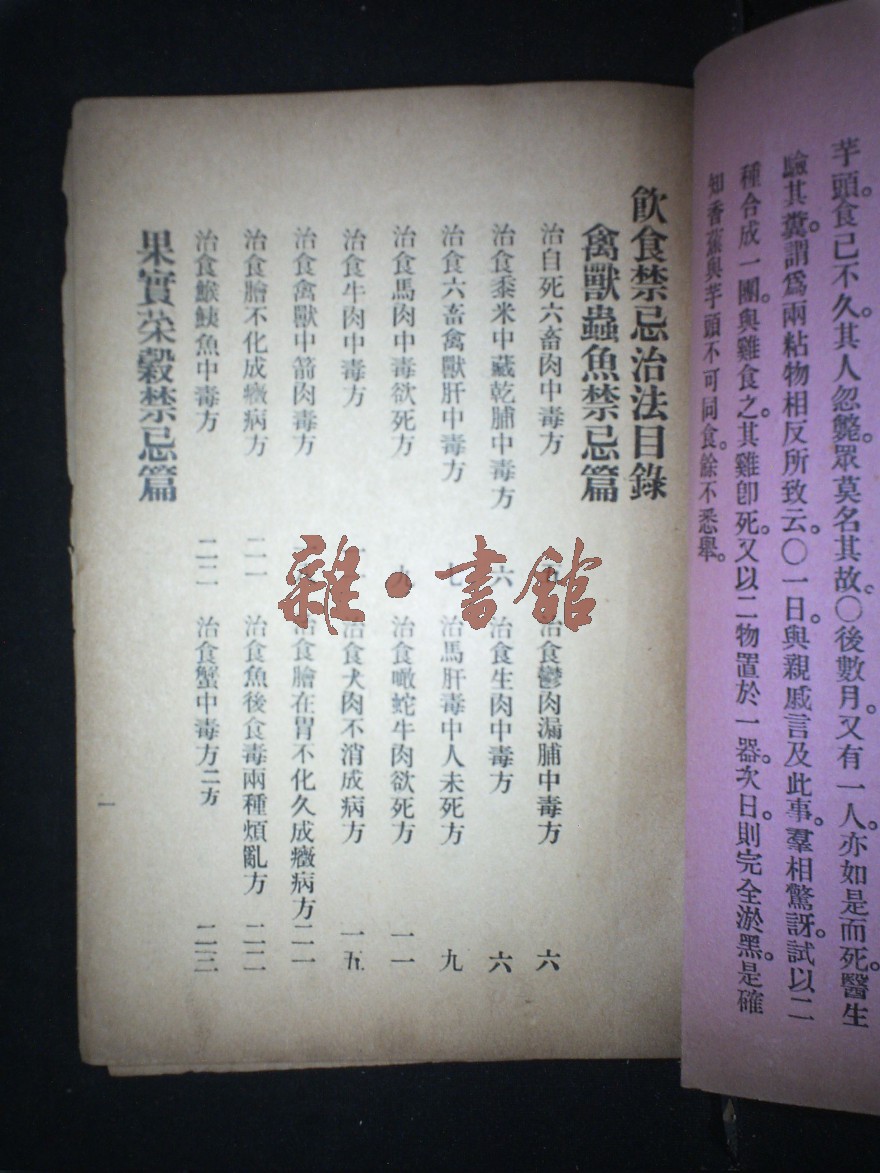 芋頭。食已不久。其人忽斃。眾莫名其故。〇後數月。又有一人。亦如是而死。醫生
驗其糞。謂爲兩粘物相反所致云。〇一日。與親戚言及此事。羣相驚訝。試以二
種合成一團。與雞食之。其雞卽死。又以二物置於一器。次日則完全淤黑。是確
知香蕉與芋頭不可同食。餘不悉舉。
飲食禁忌治法目錄
禽獸蟲魚禁忌篇
治自死六畜肉中毒方 治食鬱肉漏脯中毒方 六
治食黍米中藏乾脯中毒方 六 治食生肉中毒方 六
治食六畜禽獸肝中毒方 七 治馬肝毒中人未死方 九
治食馬肉中毒欲死方 九 治食噉蛇牛肉欲死方 一一
治食牛肉中毒方 治食犬肉不消成病方 一五
治食禽獸中箭肉毒方 治食膾在胃不化久成癥病方 二一
治食膾不化成癥病方 二一 治食魚後食毒兩種煩亂方 二二
治食鯸鮧魚中毒方 二二 治食蟹中毒方二方 二三
果實菜穀禁忌篇
一
雜·書館